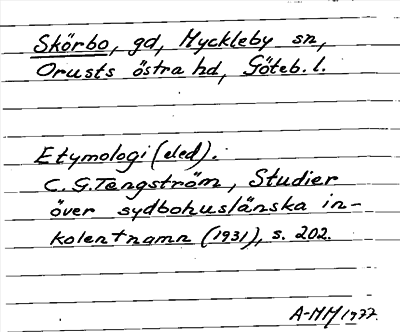 Skörbo, gd, Myckleby sn,
Orusts östra hd, Göteb. l.
Etymologi (eled).
C. G. Tengström, Studier
över sydbohuslänska in-
kolentnamn (1931), s. 202.
A-MM 1977